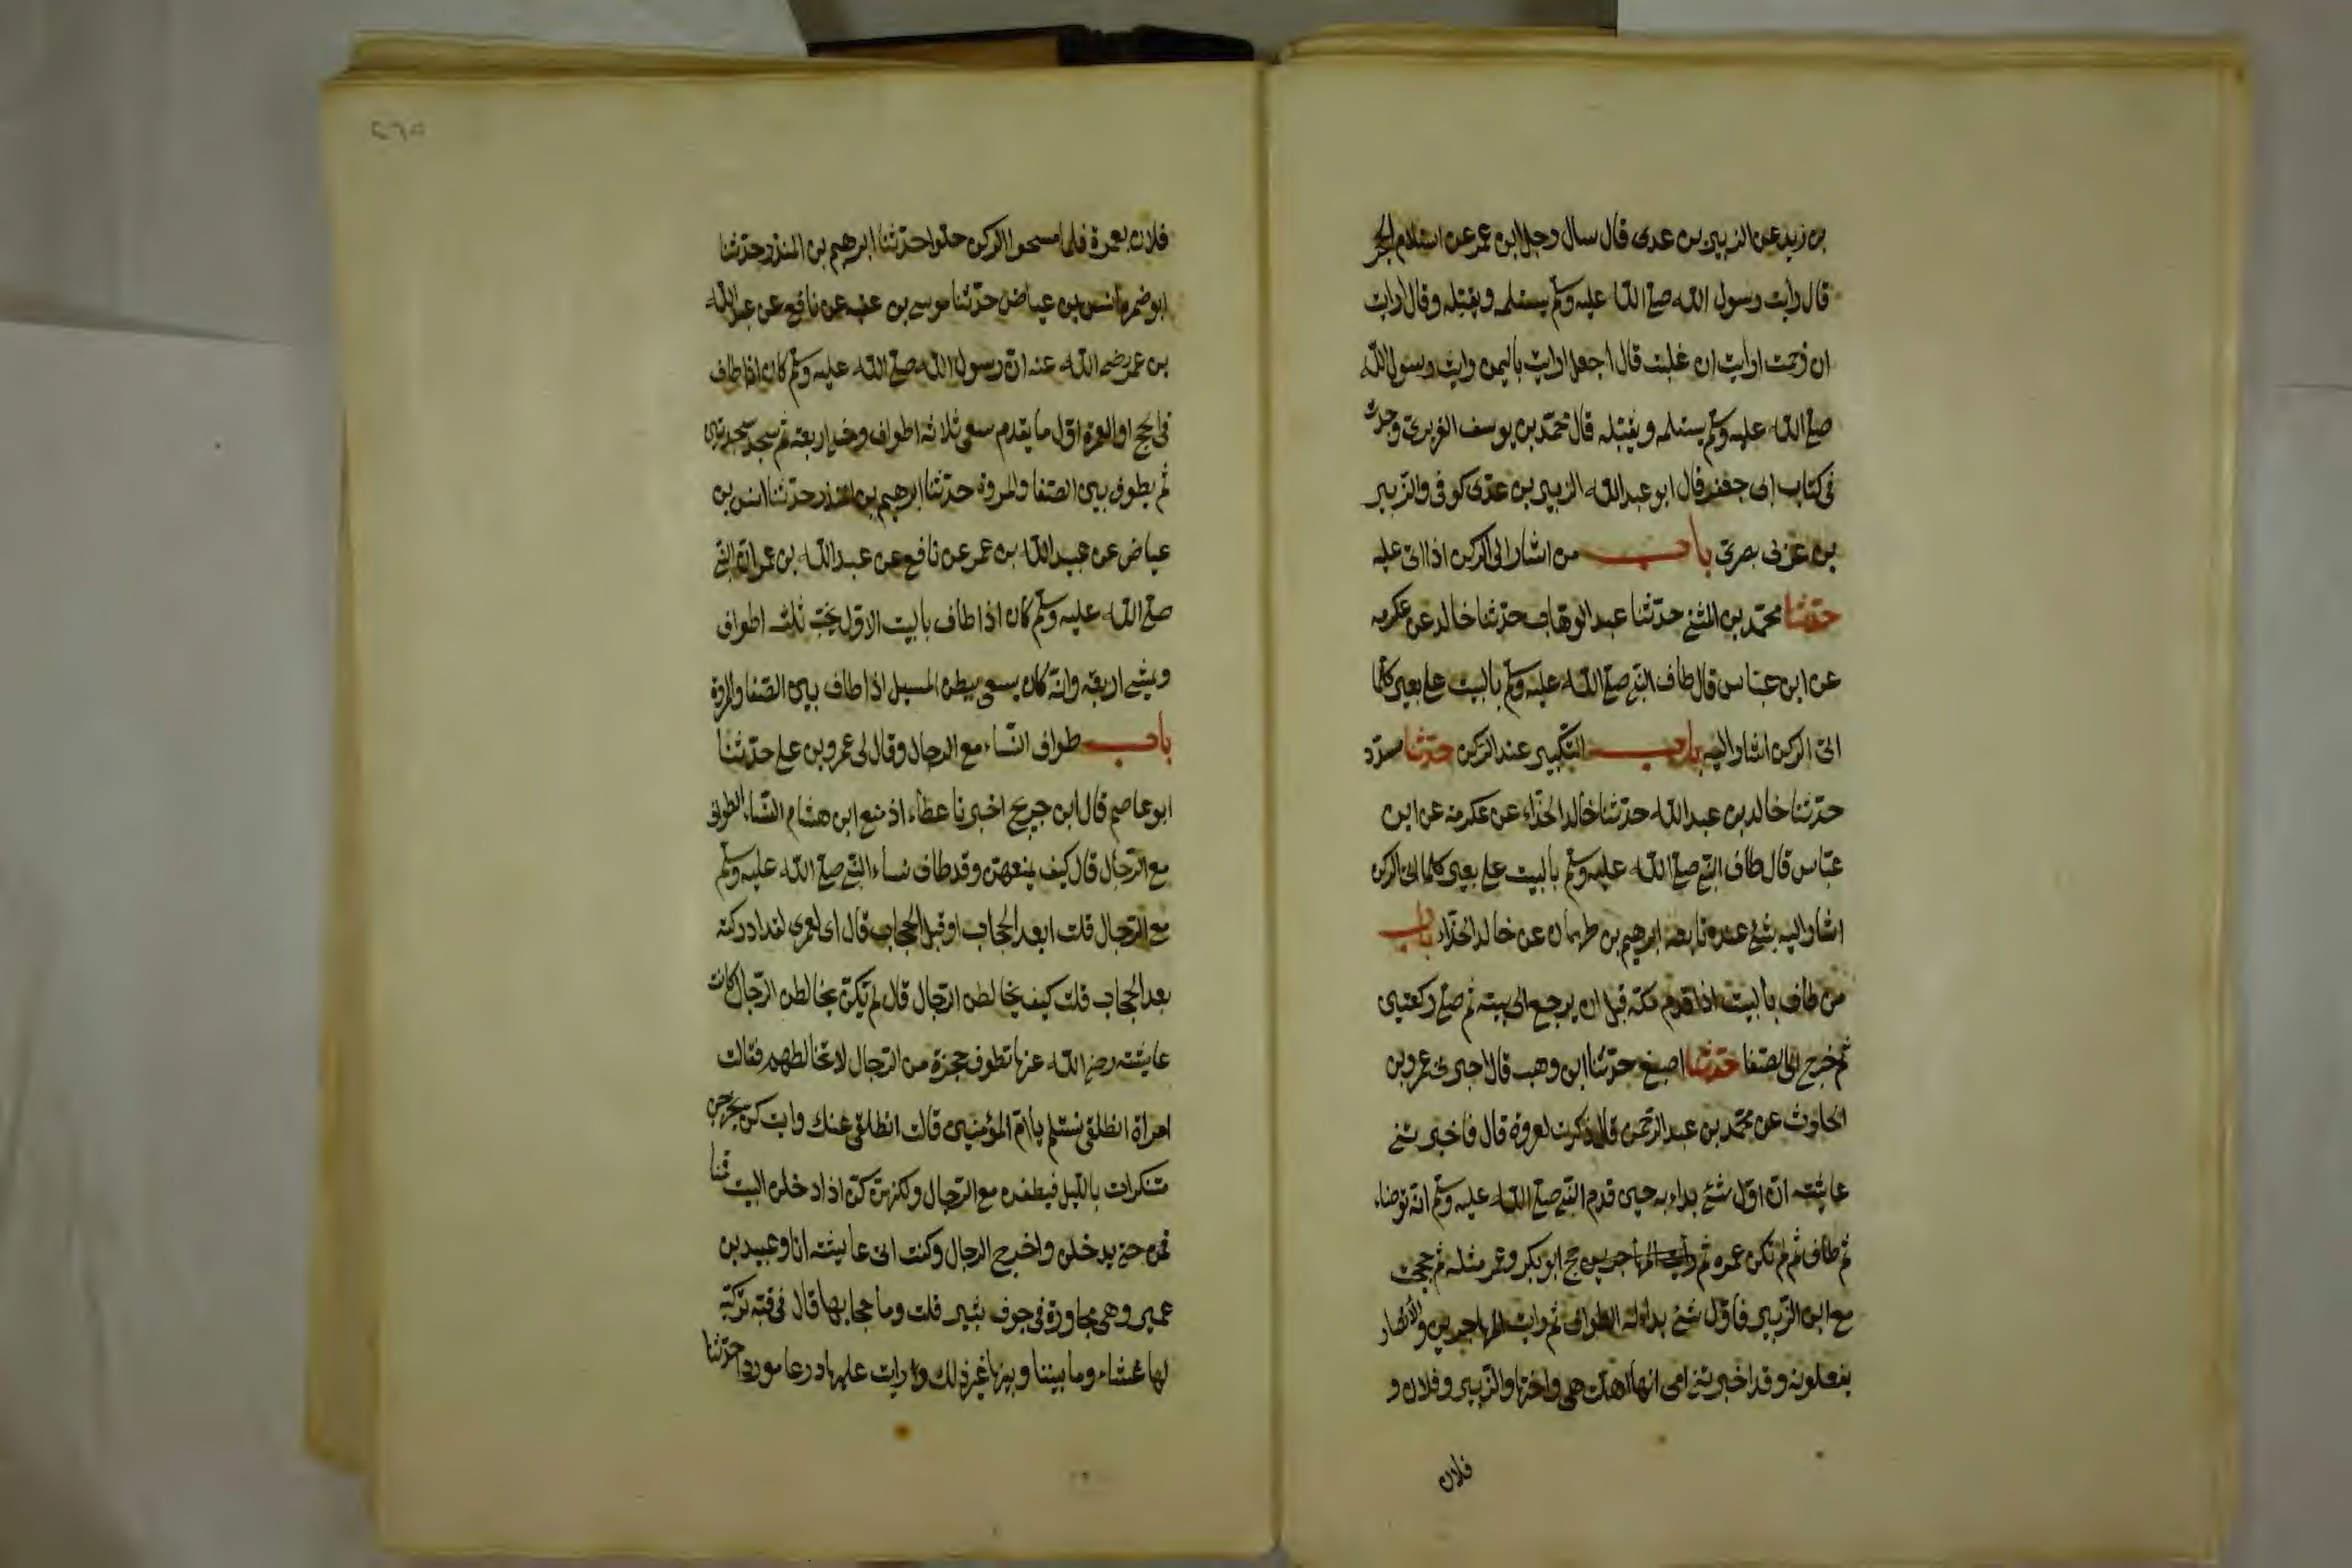 بن زيد عن الزبير بن عدى قال سال رجل ابن عمر عن استلام الحجر
قال رايت رسول الله صلى الله عليه وسلم يستلمه ويقبله وقال ارايت
ان زحمت ارايت ان غلبت قال اجعل ارايت باليمن رايت رسول الله
صلى الله عليه وسلم يستلمه ويقبله قال محمد بن يوسف الفربرى وجدت
فى كتاب ابى جعفر قال ابو عبد الله الزبير بن عدى كوفى والزبير
بن عربى بصرى باب من اشار الى الركن اذا اتى عليه
حدثنا محمد بن المثنى حدثنا عبد الوهاب حدثنا خالد عن عكرمه
عن ابن عباس قال طاف النبي صلى الله عليه وسلم بالبيت على بعير كلما
اتى الركن اشار اليه باب التكبير عند الركن حدثنا مسدد
حدثنا خالد بن عبد الله حدثنا خالد الحذاء عن عكرمة عن ابن
عباس قال طاف النبي صلى الله عليه وسلم بالبيت على بعير كلما اتى الركن
اشار اليه بشئ عنده تابعه ابرهيم بن طهمان عن خالد الحذاء باب
من طاف بالبيت اذا قدم مكة قبل ان يرجع الى بيته ثم صلى ركعتين
ثم خرج الى الصفا حدثنا اصبغ حدثنا ابن وهب قال اخبرنى عمرو بن
الحارث عن محمد بن عبد الرحمن قال ذكرت لعروة قال فاخبرتنى
عايشه ان اول شئ بداء به حين قدم النبي صلى الله عليه وسلم انه توضاء
ثم طاف ثم لم تكن عمره ثم حج ابو بكر وعمر مثله ثم حججت
مع ابن الزبير فاول شئ بداء به الطواف ثم رايت المهاجرين والانصار
يفعلونه وقد اخبرتنى امى انها اهلت هى واختها والزبير وفلان و
فلان
فلان بعمرة فلما مسحوا الركن حلوا حدثنا ابرهيم بن المنذر حدثنا
ابو ضمرة انس بن عياض حدثنا موسى بن عقبه عن نافع عن عبد الله
بن عمر رضى الله عنه ان رسول الله صلى الله عليه وسلم كان اذا طاف
فى الحج او العمرة اول ما يقدم سعى ثلاثه اطواف ومشى اربعة ثم سجد سجدتين
ثم يطوف بين الصفا والمروة حدثنا ابرهيم بن المنذر حدثنا انس بن
عياض عن عبيد الله بن عمر عن نافع عن عبد الله بن عمر ان النبي
صلى الله عليه وسلم كان اذا طاف بالبيت الاول يخب ثلث اطواف
ويمشى اربعة وانه كان يسعى ببطن المسيل اذا طاف بين الصفا والمروة
باب طواف النساء مع الرجال وقال لى عمرو بن على حدثنا
ابو عاصم قال ابن جريج اخبرنا عطاء اذ منع ابن هشام النساء الطواف
مع الرجال قال كيف يمنعهن وقد طاف نساء النبي صلى الله عليه وسلم
مع الرجال قلت ابعد الحجاب او قبل الحجاب قال اى لعمرى لقد ادركته
بعد الحجاب قلت كيف يخالطن الرجال قال لم يكن يخالطن الرجال كانت
عايشه رضى الله عنها تطوف حجزة من الرجال لا تخالطهم فقالت
امراة انطلقى نستلم يا ام المؤمنين قالت انطلقى عنك وابت كن يخرجن
متنكرات بالليل فيطفن مع الرجال ولكنهن كن اذا دخلن البيت قمنا
قمن حتى يدخلن واخرج الرجال وكنت اتى عايشه انا وعبيد بن
عمير وهى مجاورة فى جوف ثبير قلت وما حجابها قال فى قبه تركيه
لها غشاء وما بيننا وبينها غير ذلك ورايت عليها درعا موردا حدثنا